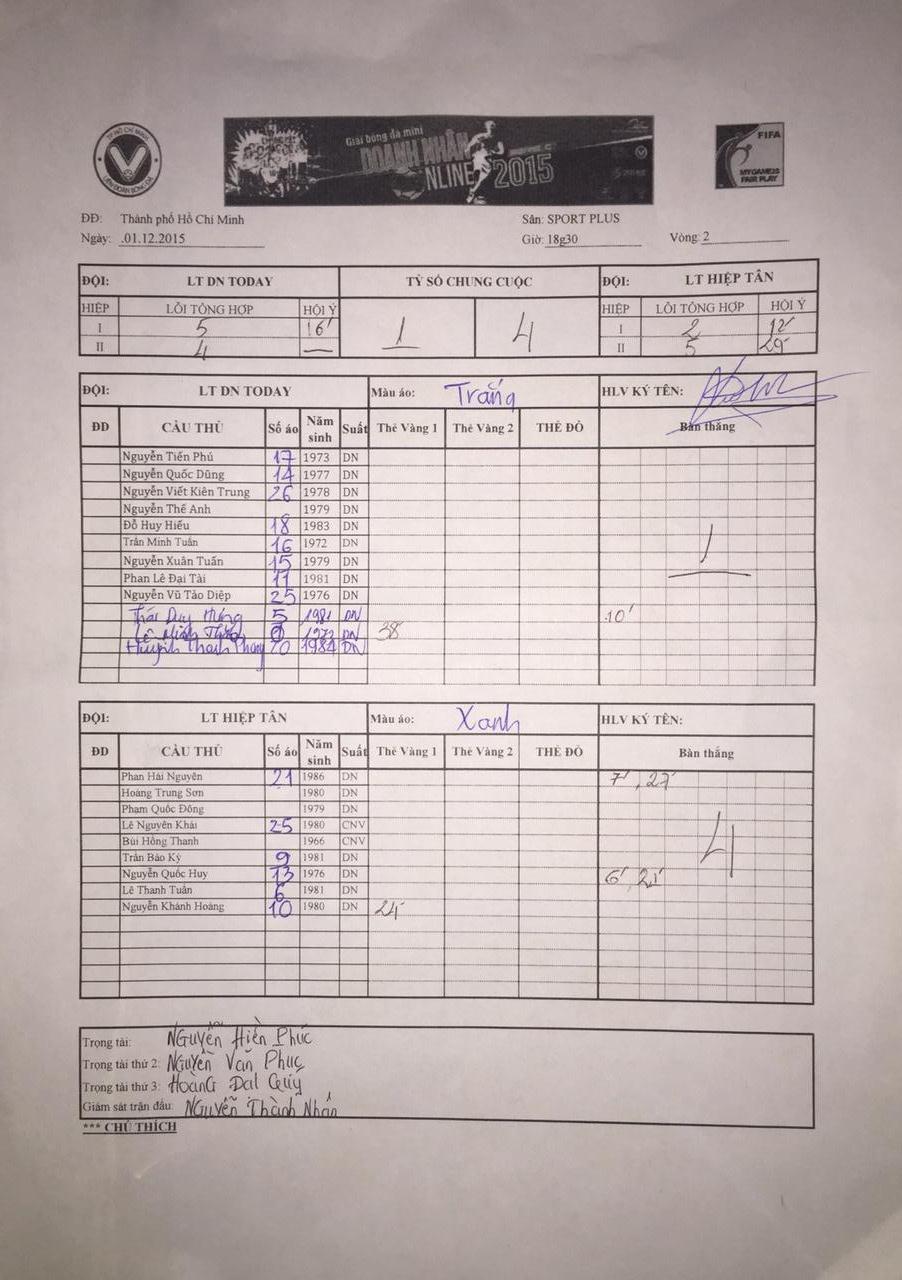 TP HỒ CHÍ MINH
LIÊN ĐOÀN BÓNG ĐÁ
Giải bóng đá mini
DOANH NHÂN
NLINE 2015
FIFA
MY GAME IS
FAIR PLAY
ĐĐ: Thành phố Hồ Chí Minh Sân: SPORT PLUS
Ngày: .01.12.2015 Giờ: 18g30 Vòng: 2
ĐỘI: LT DN TODAY TỶ SỐ CHUNG CUỘC ĐỘI: LT HIỆP TÂN
HIỆP LỖI TỔNG HỢP HỘI Ý 1 4 HIỆP LỖI TỔNG HỢP HỘI Ý
I 5 16' I 2 12'
II 4 — II 5 29'
ĐỘI: LT DN TODAY Màu áo: Trắng HLV KÝ TÊN:
ĐD CẦU THỦ Số áo Năm sinh Suất Thẻ Vàng 1 Thẻ Vàng 2 THẺ ĐỎ Bàn thắng
Nguyễn Tiến Phú 17 1973 DN
Nguyễn Quốc Dũng 14 1977 DN
Nguyễn Viết Kiên Trung 26 1978 DN
Nguyễn Thế Anh 1979 DN
Đỗ Huy Hiếu 18 1983 DN
Trần Minh Tuấn 16 1972 DN 1
Nguyễn Xuân Tuấn 15 1979 DN
Phan Lê Đại Tài 11 1981 DN
Nguyễn Vũ Tảo Diệp 25 1976 DN
Thái Duy Hưng 5 1981 DN 10'
Lê Minh 1972 DN 38
Huỳnh Thanh Phong 1984 DN
ĐỘI: LT HIỆP TÂN Màu áo: Xanh HLV KÝ TÊN:
ĐD CẦU THỦ Số áo Năm sinh Suất Thẻ Vàng 1 Thẻ Vàng 2 THẺ ĐỎ Bàn thắng
Phan Hải Nguyên 21 1986 DN 7', 27'
Hoàng Trung Sơn 1980 DN
Phạm Quốc Đông 1979 DN
Lê Nguyên Khải 25 1980 CNV 4
Bùi Hồng Thanh 1966 CNV
Trần Bảo Kỳ 9 1981 DN
Nguyễn Quốc Huy 13 1976 DN 6', 21'
Lê Thanh Tuấn 6 1981 DN
Nguyễn Khánh Hoàng 10 1980 DN 24'
Trọng tài: Nguyễn Hiền Phúc
Trọng tài thứ 2: Nguyễn Văn Phục
Trọng tài thứ 3: Hoàng Đạt Quý
Giám sát trận đấu: Nguyễn Thành Nhân
*** CHÚ THÍCH